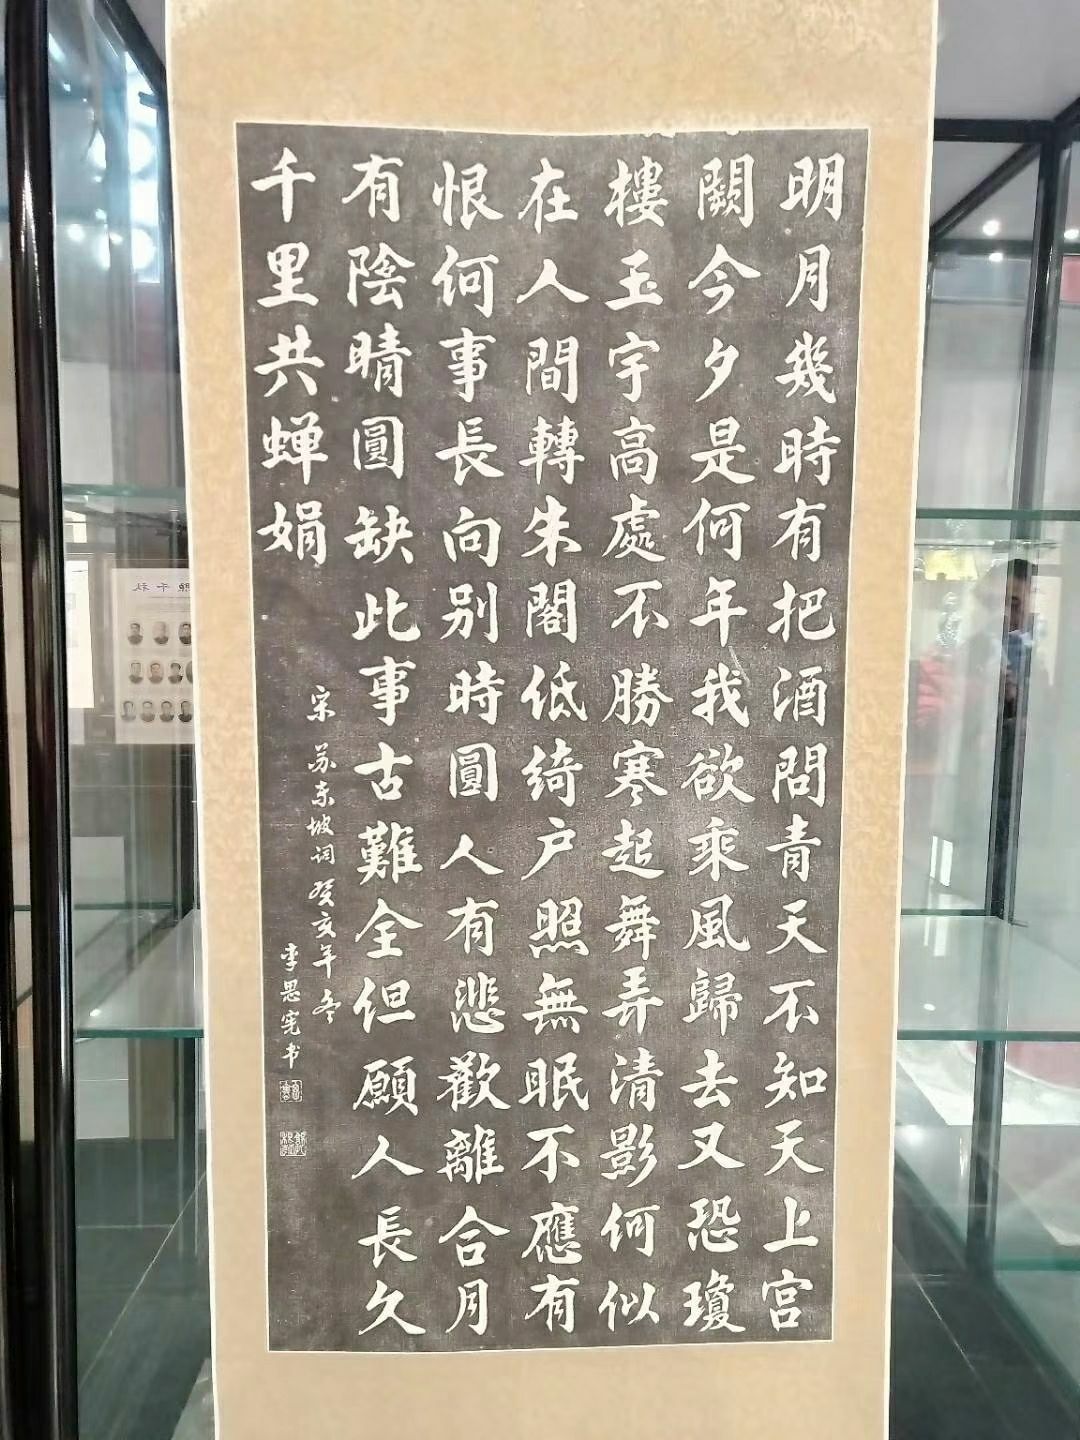 明月幾時有把酒問青天不知天上宫
闕今夕是何年我欲乘風歸去又恐瓊
樓玉宇高處不勝寒起舞弄清影何似
在人間轉朱閣低綺户照無眠不應有
恨何事長向别時圓人有悲歡離合月
有陰晴圓缺此事古難全但願人長久
千里共蝉娟
宋 苏东坡词癸亥年冬
李思宪书